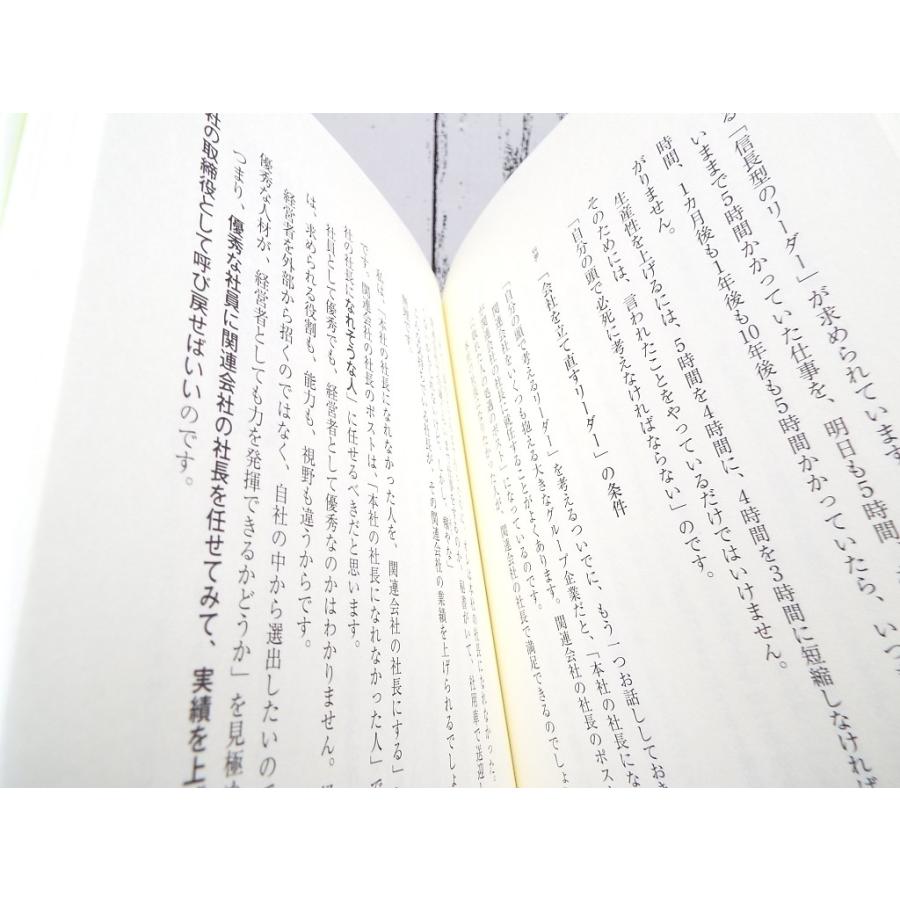 る「信長型のリーダー」が求められています。
いままで5時間かかっていた仕事を、明日も5時間、
時間、1カ月後も1年後も10年後も5時間かかっていたら、いつ
がりません。
生産性を上げるには、5時間を4時間に、4時間を3時間に短縮しなければ
そのためには、言われたことをやっているだけではいけません。
「自分の頭で必死に考えなければならない」のです。
「会社を立て直すリーダー」の条件
「自分の頭で考えるリーダー」を考えるついでに、もう一つお話ししてお
関連会社をいくつも抱える大きなグループ企業だと、「本社の社長にな
関連会社の社長に就任することがよくあります。関連会社の社長のポス
になっているのです。
関連会社の社長で満足できるのでしょ
その関連会社の業績を上げられるでしょ
私は、「本社の社長になれなかった人を、関連会社の社長にする」
です。関連会社の社長のポストは、「本社の社長になれなかった人」で
社の社長になれそうな人」に任せるべきだと思います。
社員として優秀でも、経営者として優秀なのかはわかりません。
は、求められる役割も、能力も、視野も違うからです。
経営者を外部から招くのではなく、自社の中から選出したいので
優秀な人材が、経営者としても力を発揮できるかどうか」を見極め
つまり、優秀な社員に関連会社の社長を任せてみて、実績を上
社の取締役として呼び戻せばいいのです。